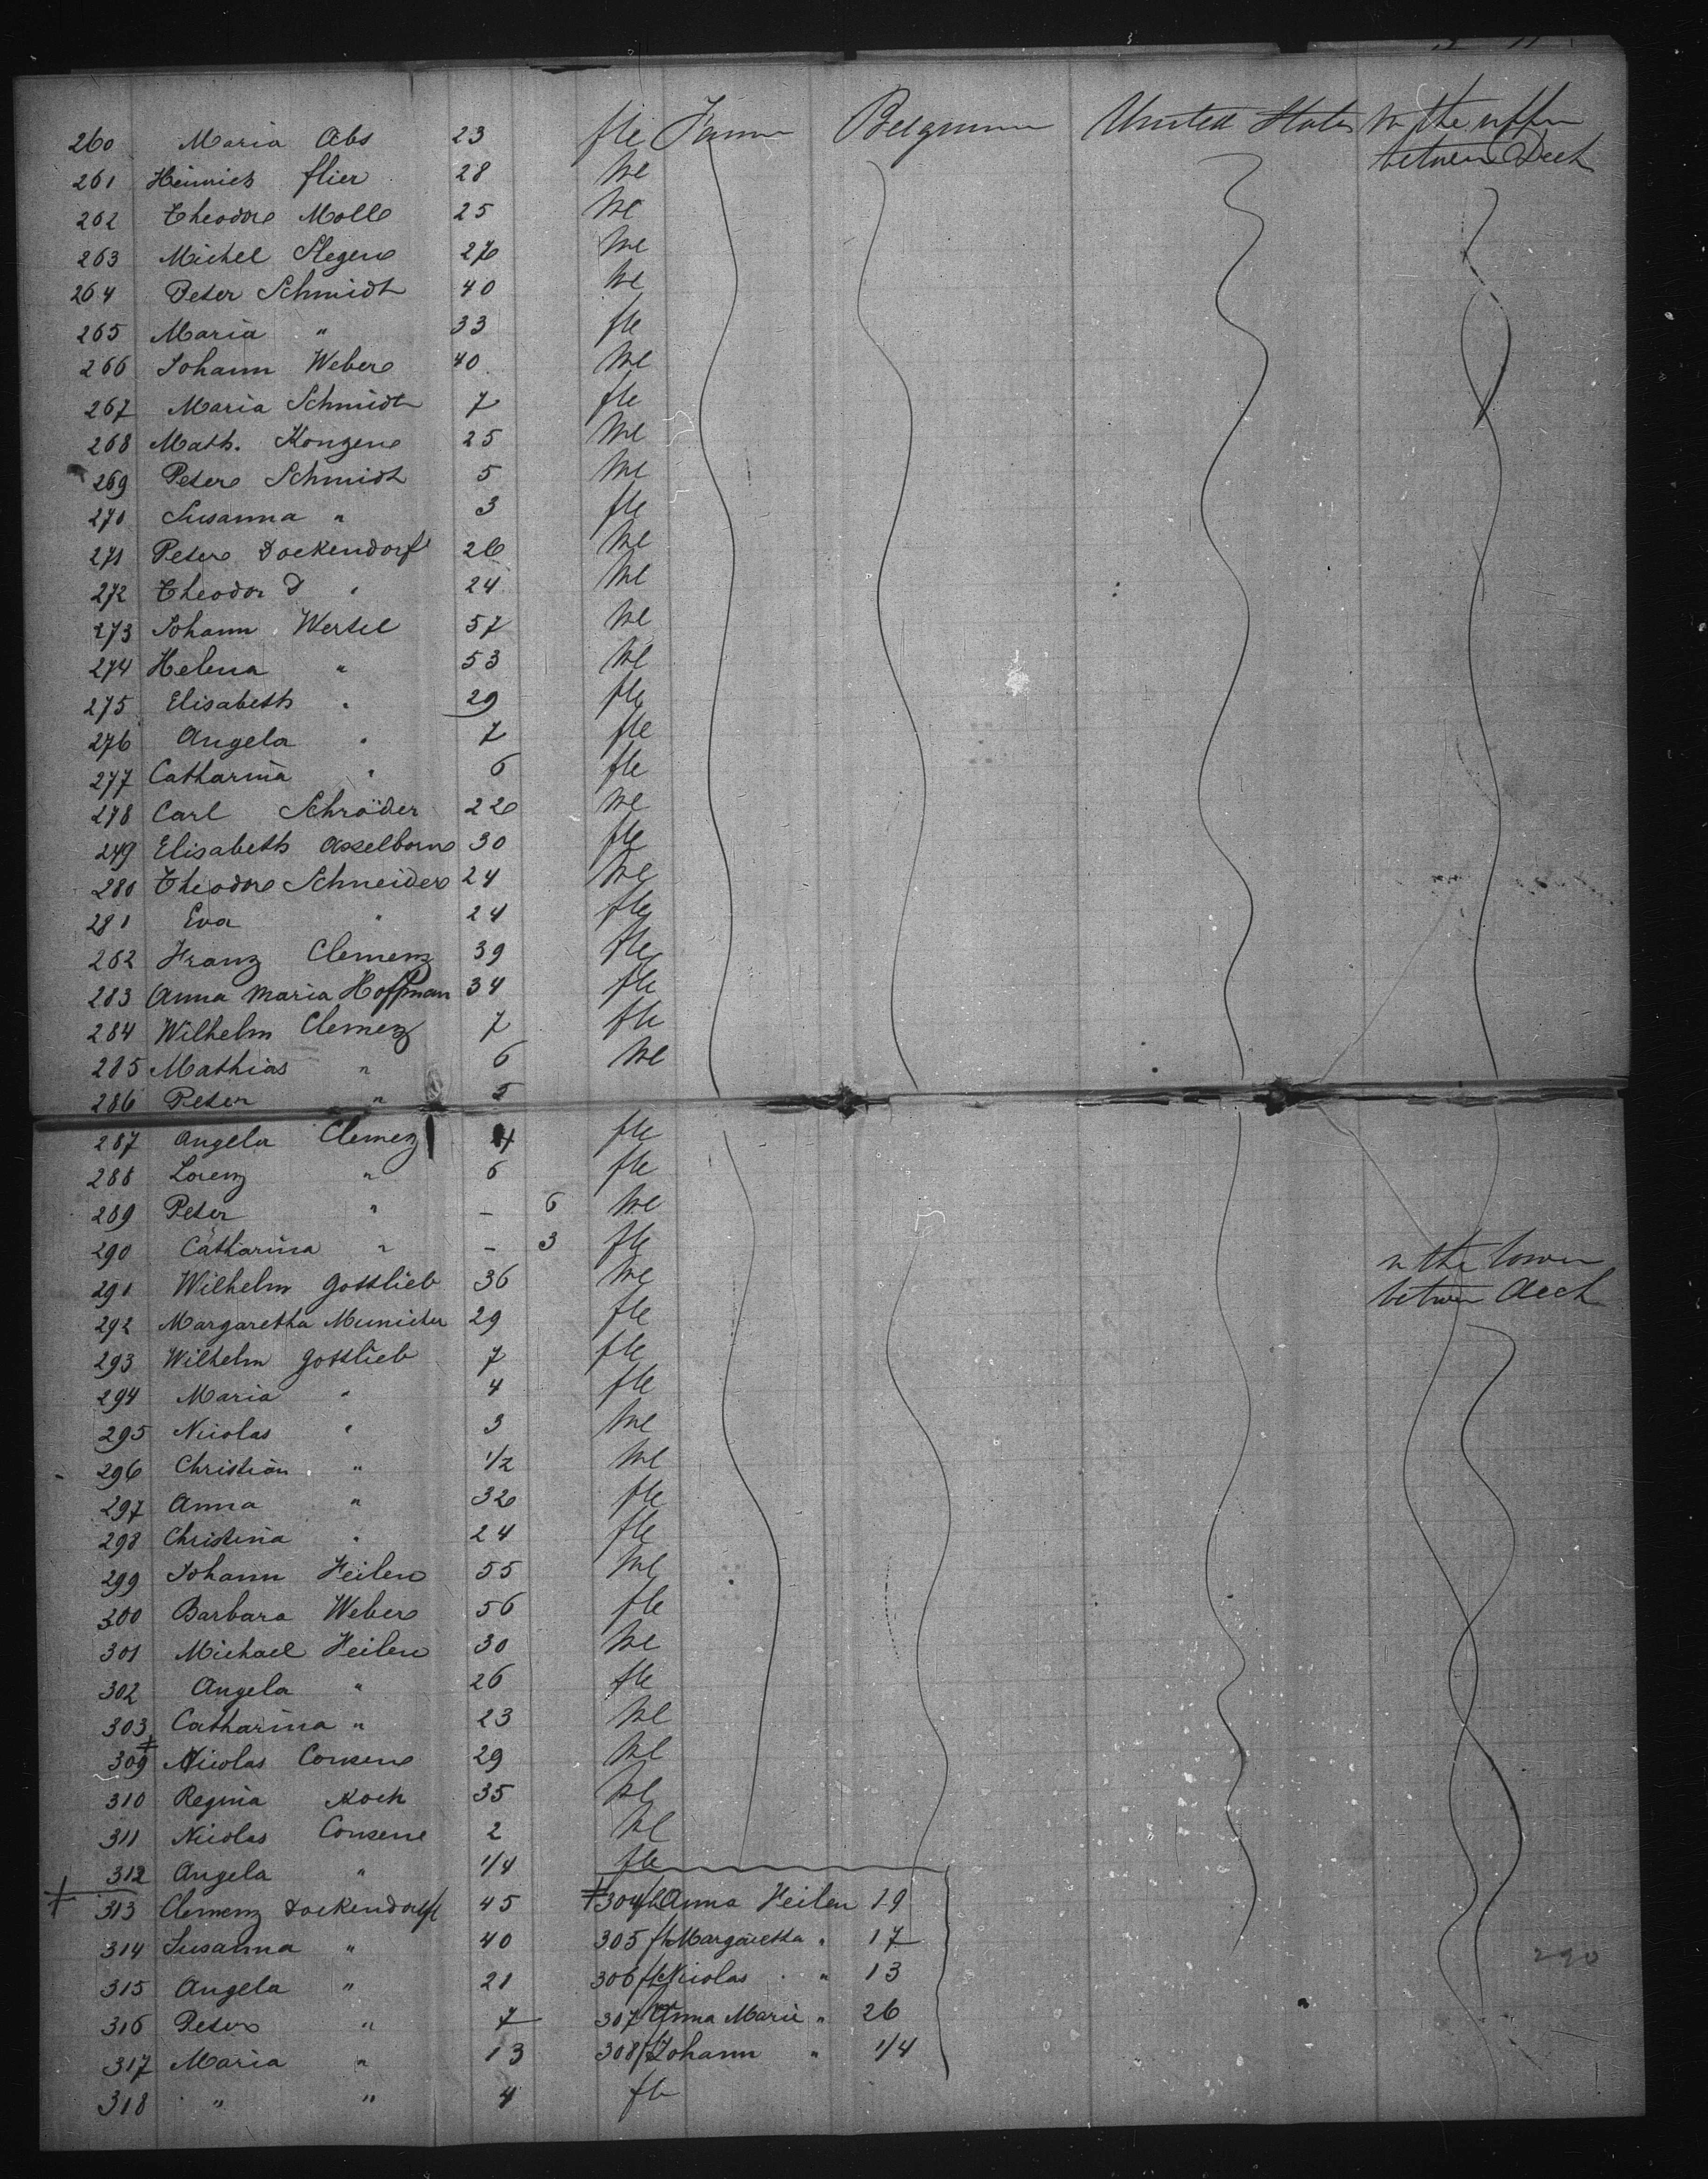 260 Maria Abs 23 fle Farmer Belgium United States In the upper
between Deck
261 Heinrich flier 28 Me
262 Theodore Molle 25 Me
263 Michel Stegen 26 Me
264 Peter Schmidt 40 Me
265 Maria " 33 fle
266 Johann Weber 40 Me
267 Maria Schmidt 7 fle
268 Math. Konzen 25 Me
269 Peter Schmidt 5 Me
270 Susanna " 3 fle
271 Peter Dockendorf 26 Me
272 Theodor D " 24 Me
273 Johann Wertel 57 Me
274 Helena " 53 Me
275 Elisabeth " 29 fle
276 Angela " 7 fle
277 Catharina " 6 fle
278 Carl Schröder 22 Me
249 Elisabeth Asselborn 30 fle
280 Theodore Schneider 24 Me
281 Eva " 24 fle
282 Franz Clemenz 39 fle
283 Anna Maria Hoffman 34 fle
284 Wilhelm Clemenz 7 fle
285 Mathias " 6 Me
286 Peter " 5
287 Angela Clemenz 4 fle
288 Lorenz " 6 fle
289 Peter " - 6 Me
290 Catharina " - 3 fle
In the lower
between deck
291 Wilhelm Gottlieb 36 Me
292 Margaretha Municher 29 fle
293 Wilhelm Gottlieb 7 fle
294 Maria " 4 fle
295 Nicolas " 3 Me
296 Christian " 1/2 Me
297 Anna " 32 fle
298 Christina " 24 fle
299 Johann Heilen 55 Me
300 Barbara Weber 56 fle
301 Michael Heilen 30 Me
302 Angela " 26 fle
303 Catharina " 23 Me
309 Nicolas Consene 29 Me
310 Regina Koch 35 Me
311 Nicolas Consene 2 Me
312 Angela " 1/4 fle
313 Clemenz Dockendorff 45 ‡ 304 fle Anna Heilen 19
314 Susanna " 40 305 fle Margaretha " 17
315 Angela " 21 306 Nicolas " 13
316 Peter " 7 307 Anna Marie " 26
290
317 Maria " 13 308 Johann " 1/4
318 " " 4 fle